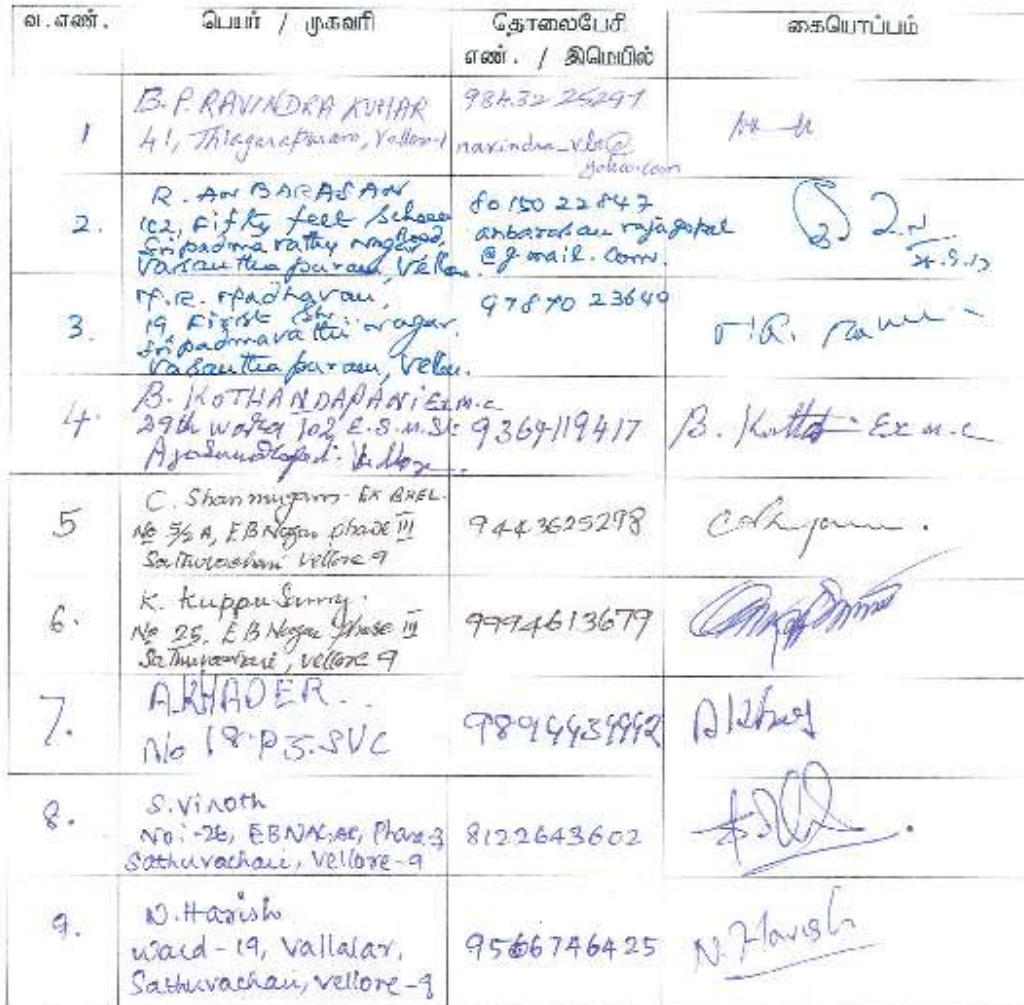 வ.எண்.
பெயர் / முகவரி
தொலைபேசி
எண். / இமெயில்
கையொப்பம்
1
B.P. RAVINDRA KUMAR
41, Thiagarapuram, Vellore-1
98432 25297
yahoo.com
2.
R. ANBARASAN
102, Fifty feet School
Sripadmavathy nagar,
Vasanthapuram, Vellore.
80150 22847
anbarasan rajagopal
@gmail.com.
3.
19, First Str
Sripadmavathi nagar,
Vasanthapuram, Vellore.
97870 23640
4.
B. KOTHANDAPANI Ex M.C
29th ward 102 E.S.M.St
Vellore
9364119417
B. Ex M.C
5
C. Shanmugam EX BHEL.
No 5/2 A, EB Nagar Phase III
Sathuvachari Vellore 9
9443625298
6.
K. Kuppusamy.
No 25, EB Nagar Phase III
Sathuvachari, Vellore 9
9994613679
7.
A.KHADER..
No 18
8.
S.Vinoth
No:-26, EBNAGAR, Phase-3
Sathuvachari, Vellore-9
8122643602
9.
N.Harish
ward-19, Vallalar,
Sathuvachari, Vellore-9
9566746425
N.Harish